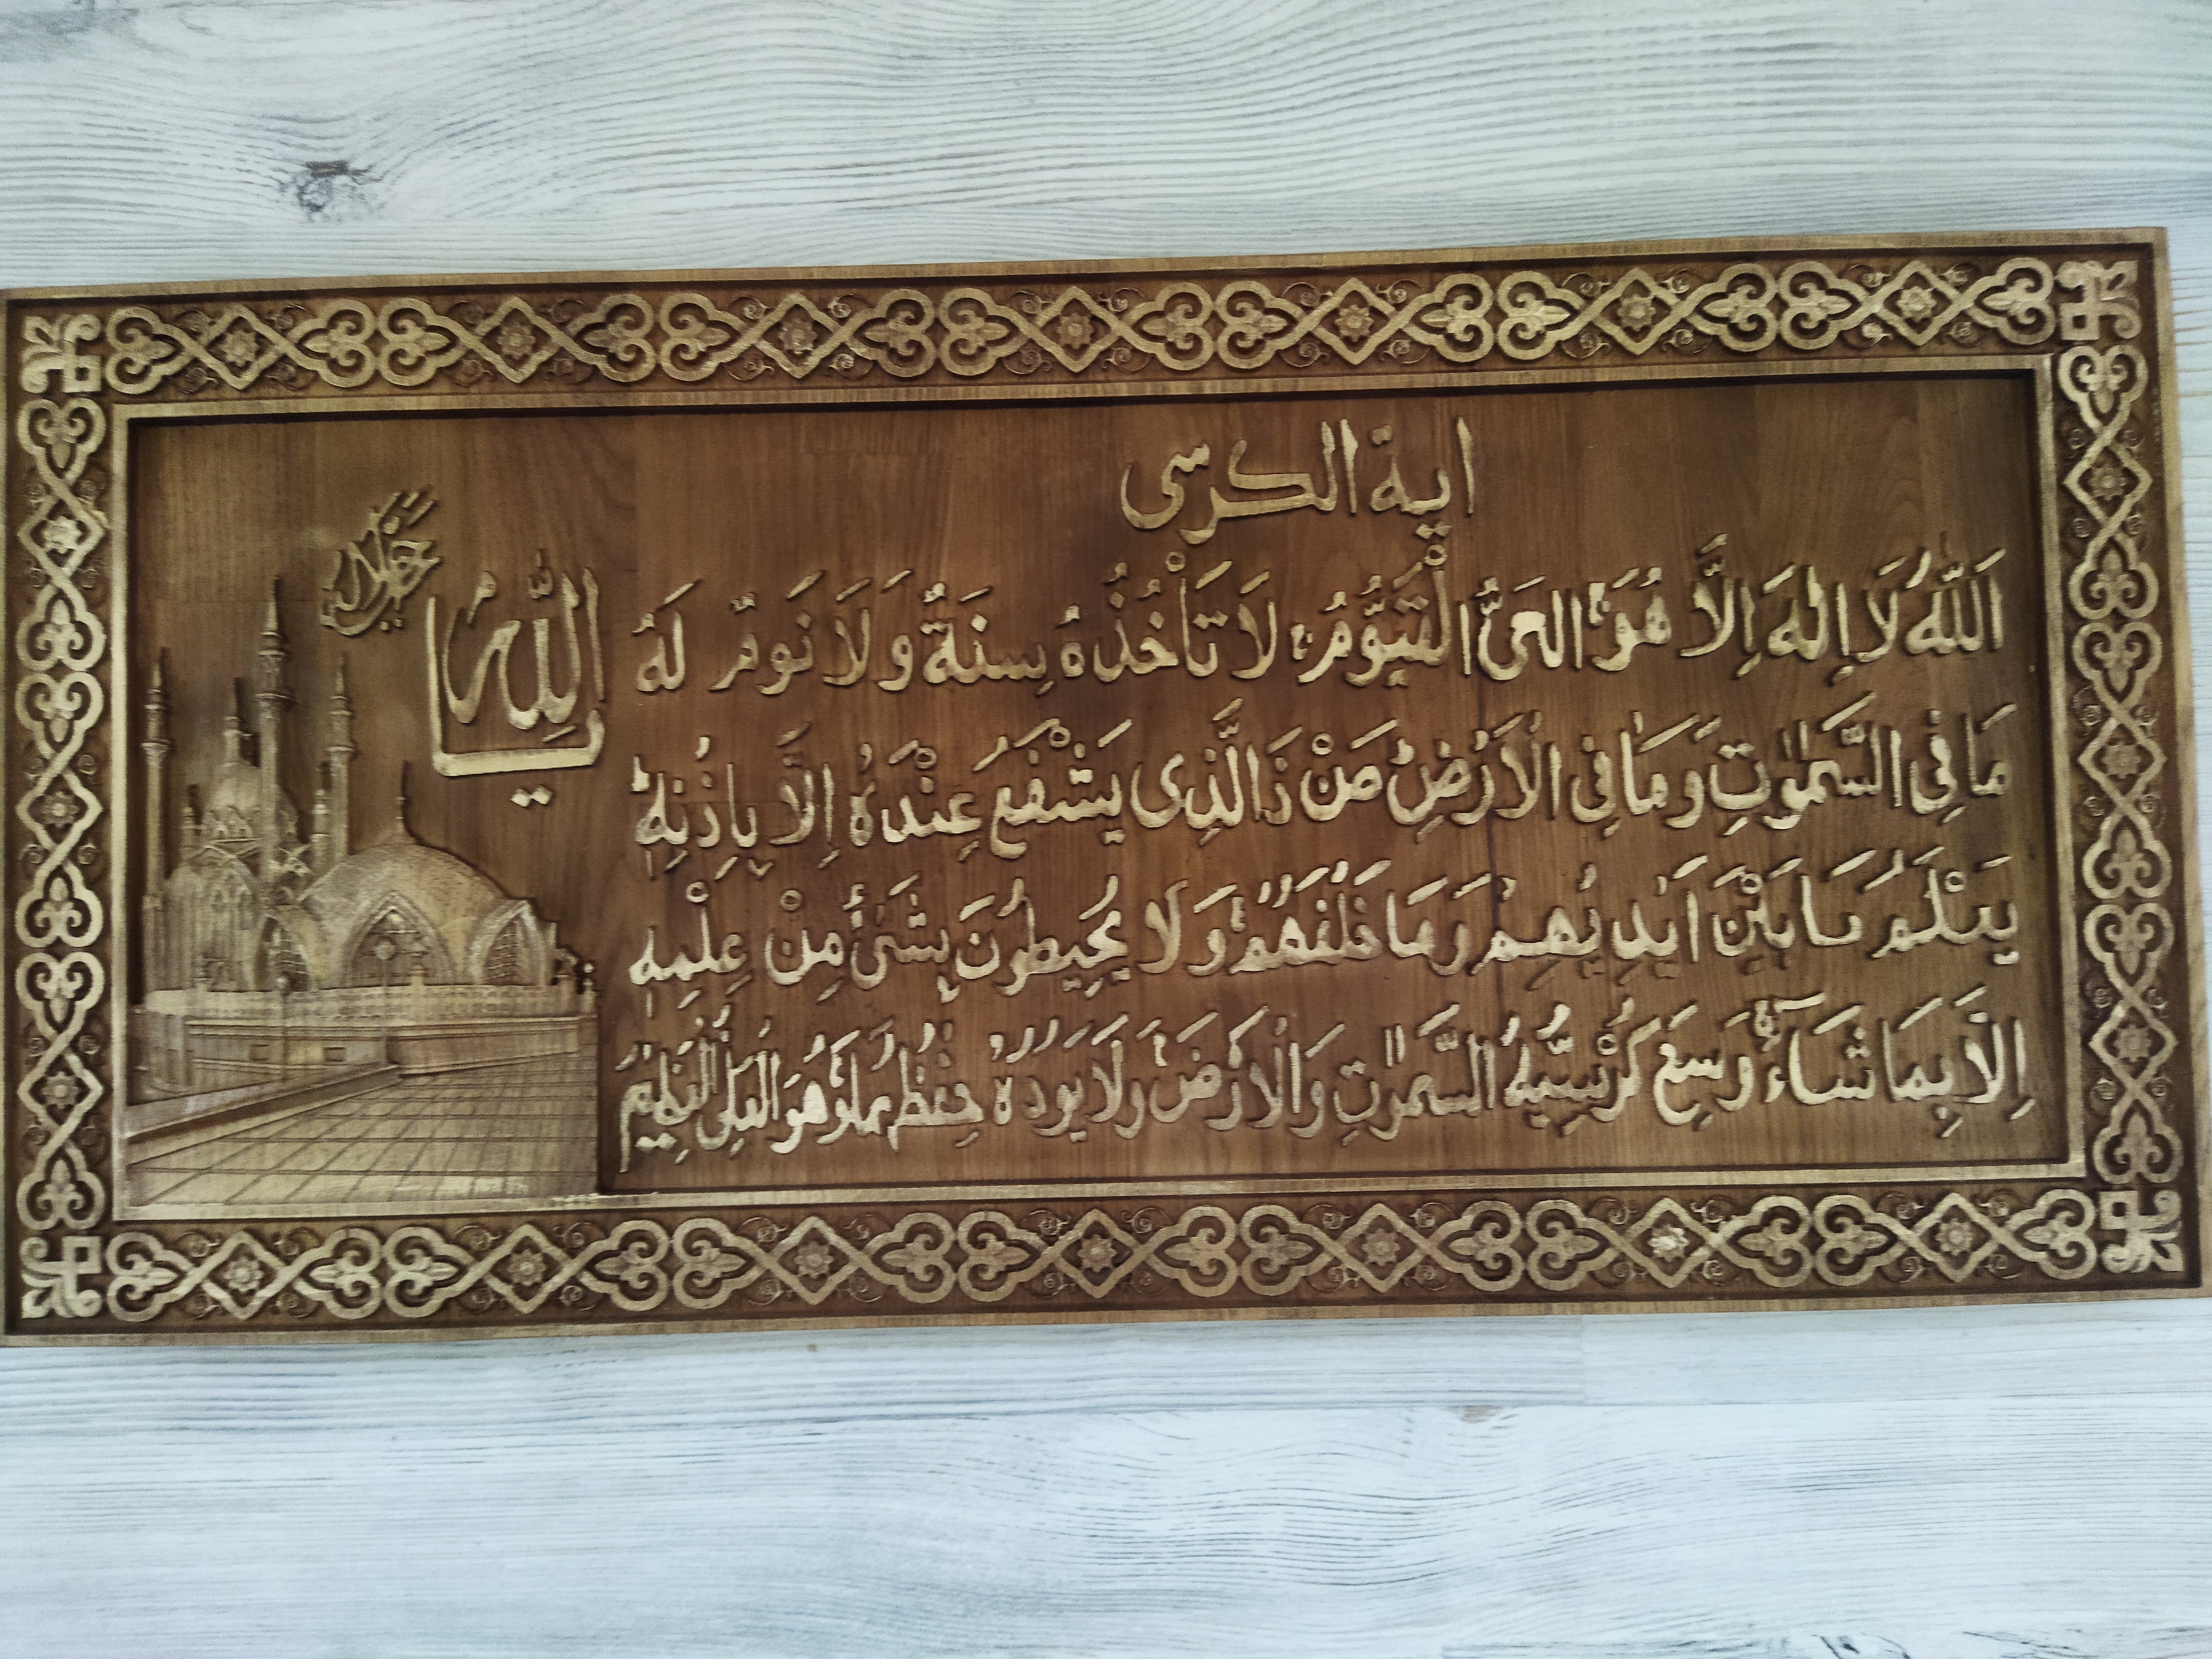 اية الكرسى
اَللّٰهُ لَا اِلٰهَ اِلَّا هُوَ الحَىُّ الْقَيُّومُ لَا تَأْخُذُهُ سِنَةٌ وَلَا نَومٌ لَهُ
مَا فِى السَّمٰوٰتِ وَمَا فِى الْاَرْضِ مَنْ ذَا الَّذِى يَشْفَعُ عِنْدَهُ اِلَّا بِاِذْنِهِ
يَعْلَمُ مَا بَيْنَ اَيْدِيْهِمْ وَمَا خَلْفَهُمْ وَلَا يُحِيطُونَ بِشَىْءٍ مِنْ عِلْمِهِ
اِلَّا بِمَا شَآءَ وَسِعَ كُرْسِيُّهُ السَّمٰوٰتِ وَالْاَرْضَ وَلَا يَؤُدُهُ حِفْظُهُمَا وَهُوَ الْعَلِىُّ الْعَظِيمُ
يا الله